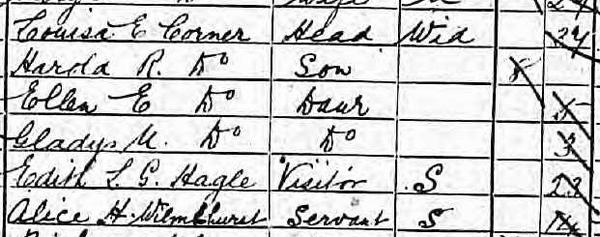 Louisa E Corner Head Wid 34
Harold R. Do Son 8
Ellen E Do Daur 5
Gladys M. Do Do 3
Edith L. G. Hagle Visitor S 23
Alice H. Wilmshurst Servant S